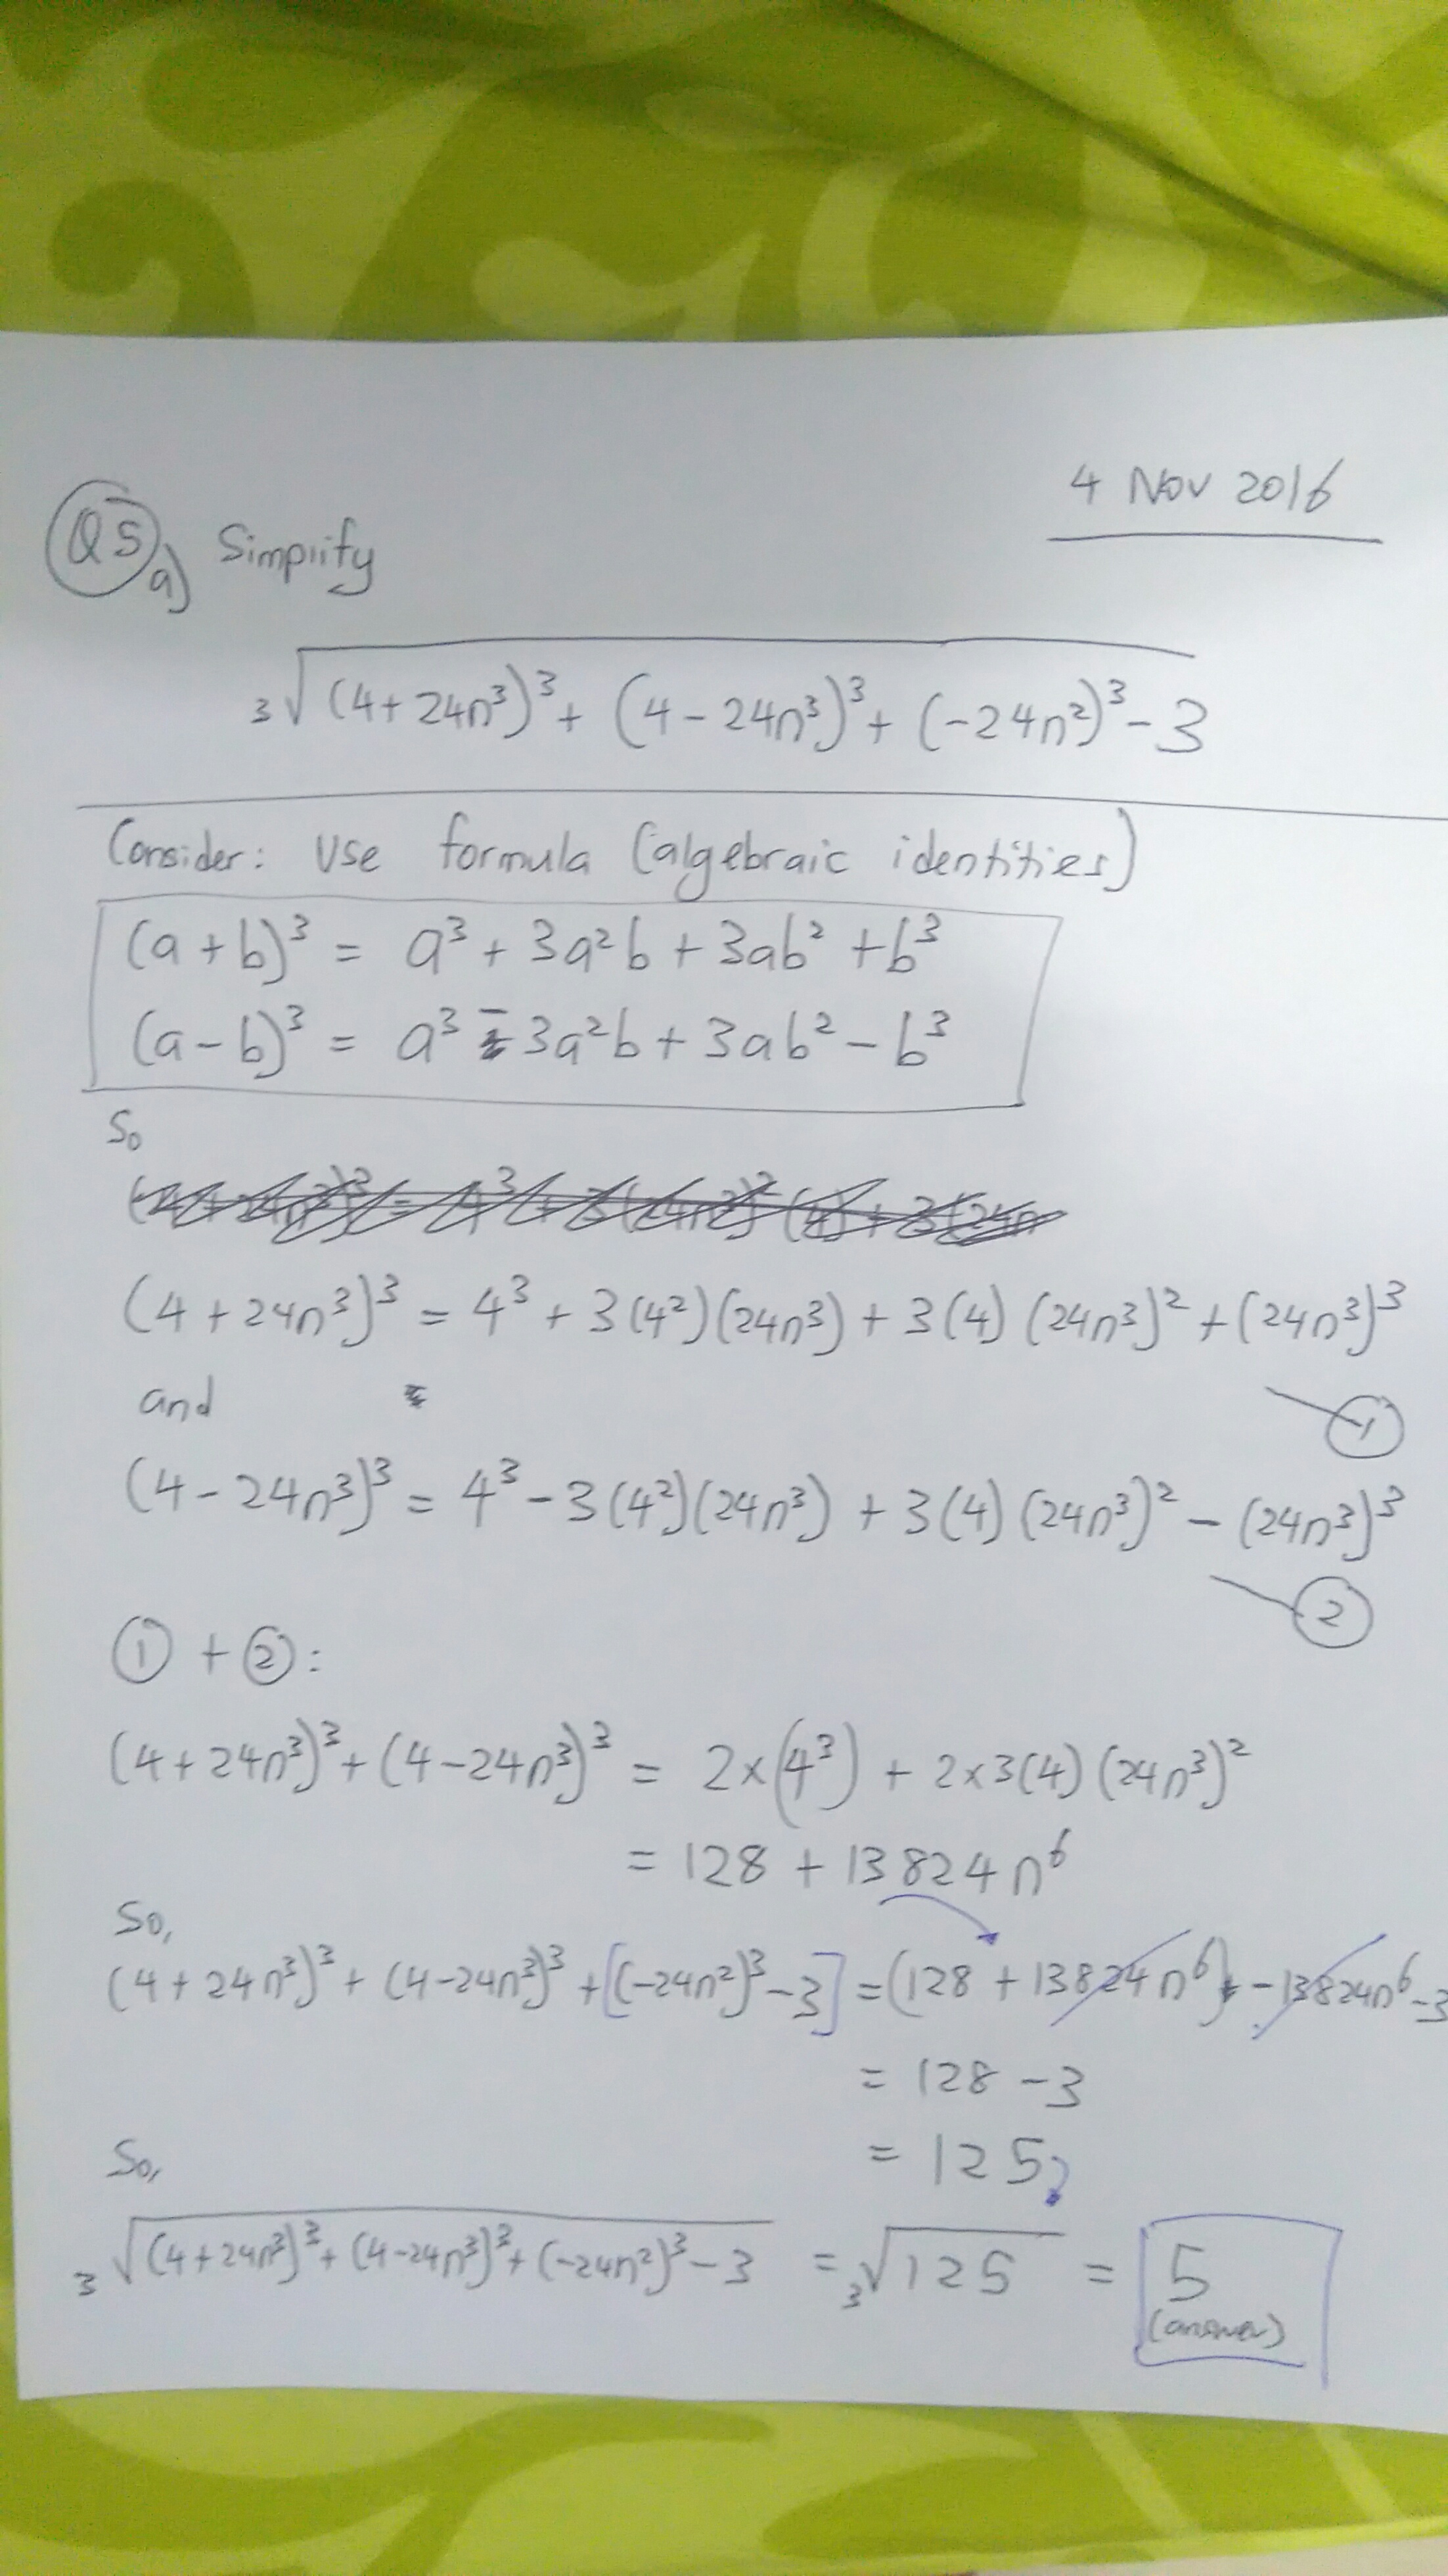 4 Nov 2016
Q5 a) Simplify
∛((4+24n³)³ + (4-24n³)³ + (-24n²)³ - 3)
Consider: Use formula (algebraic identities)
(a+b)³ = a³ + 3a²b + 3ab² + b³
(a-b)³ = a³ - 3a²b + 3ab² - b³
So
(4+24n³)³ = 4³ + 3(4²)(24n³) + 3(4)(24n³)² + (24n³)³
and
①
(4-24n³)³ = 4³ - 3(4²)(24n³) + 3(4)(24n³)² - (24n³)³
②
① + ②:
(4+24n³)³ + (4-24n³)³ = 2×(4³) + 2×3(4)(24n³)²
= 128 + 13824n⁶
So,
(4+24n³)³ + (4-24n³)³ + [(-24n²)³ - 3] = (128 + 13824n⁶) - 13824n⁶ - 3
= 128 - 3
= 125
So,
∛((4+24n³)³ + (4-24n³)³ + (-24n²)³ - 3) = ∛125 = 5
(answer)